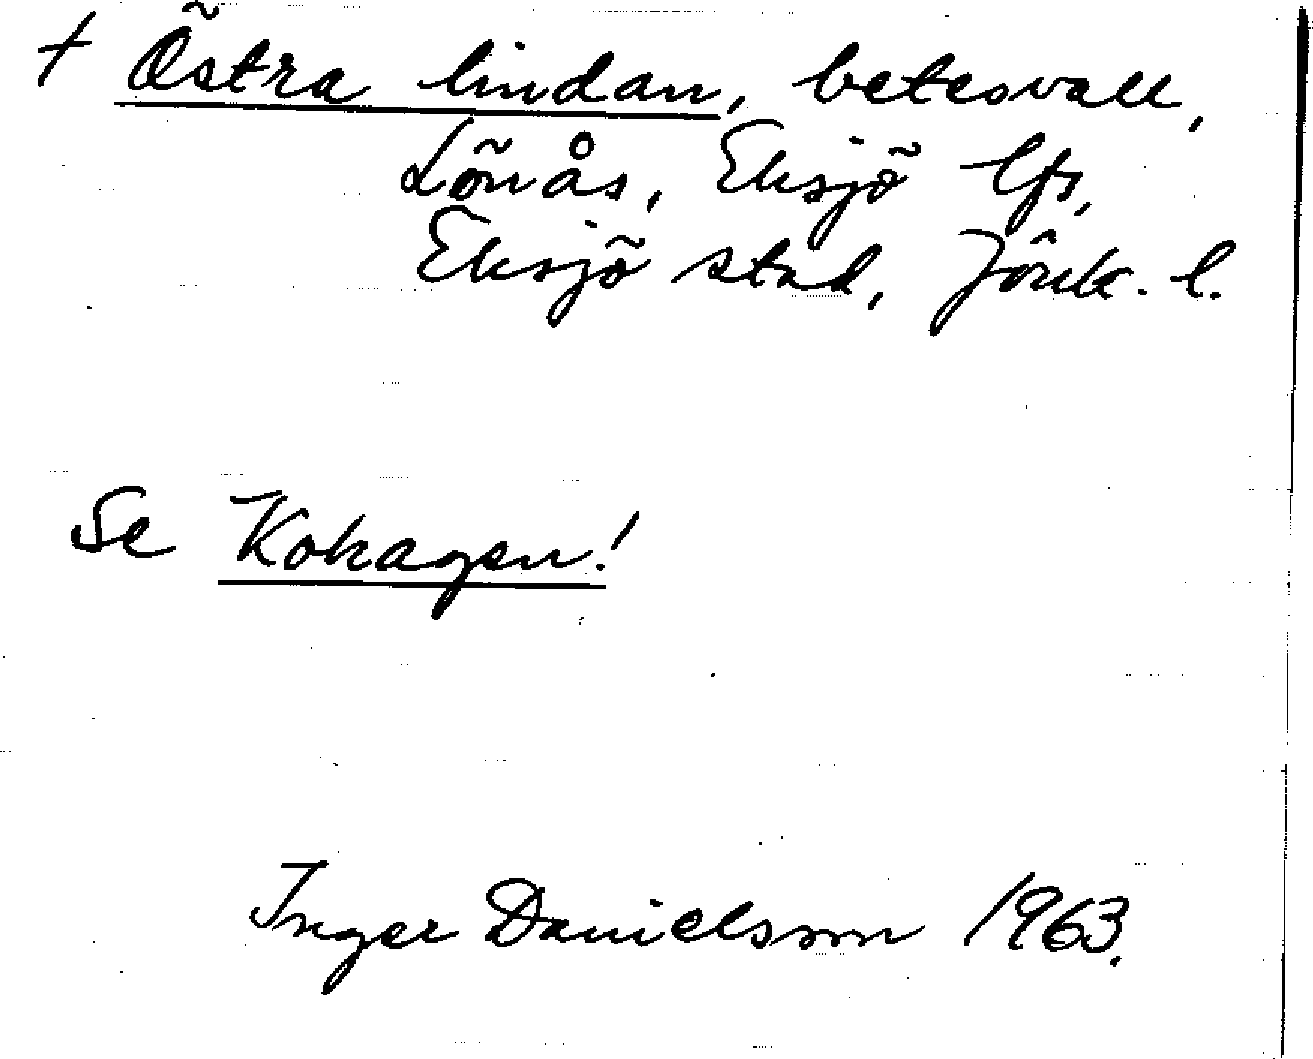 † Östra lindan, betesvall,
Lönås, Eksjö lfs,
Eksjö stad, Jönk. l.
Se Kohagen!
Inger Danielsson 1963.